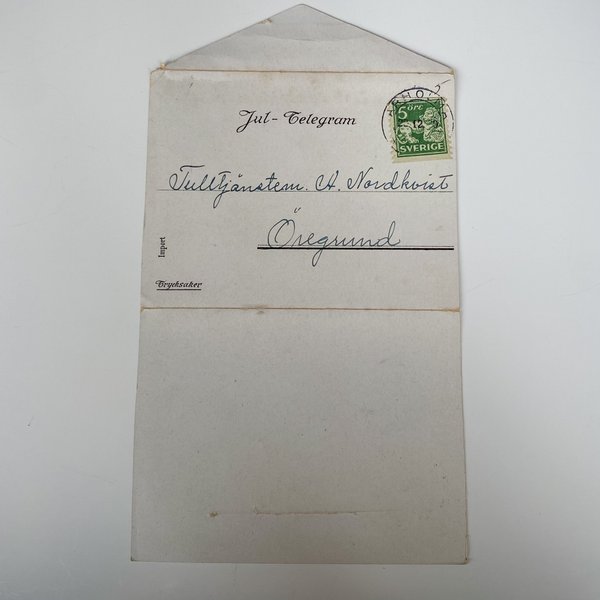 ARHOLMA
12
5 ÖRE
SVERIGE
Jul-Telegram
Tulltjänstem. H. Nordkvist
Öregrund
Import
Trycksaker